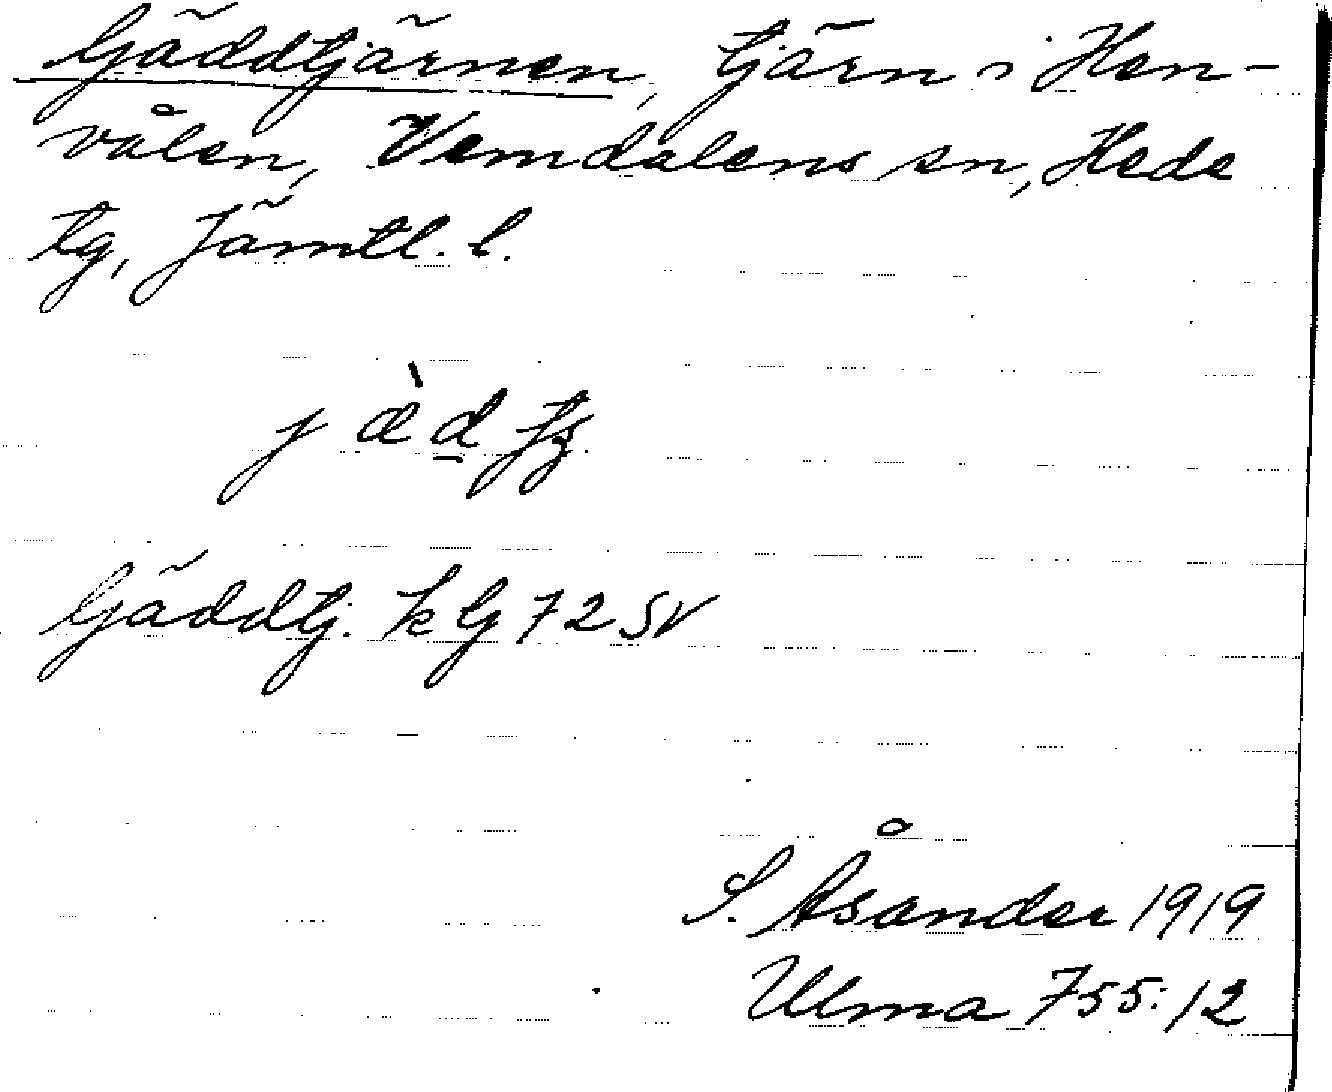 Gäddtjärnen, tjärn i Hen-
vålen, Vemdalens sn, Hede
tg, Jämtl. l.
Gäddtj. k G 72 SV
S. Åsander 1919
Ulma 755:12